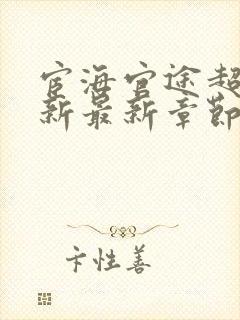 宦海官途超
新最新章節
卞性善